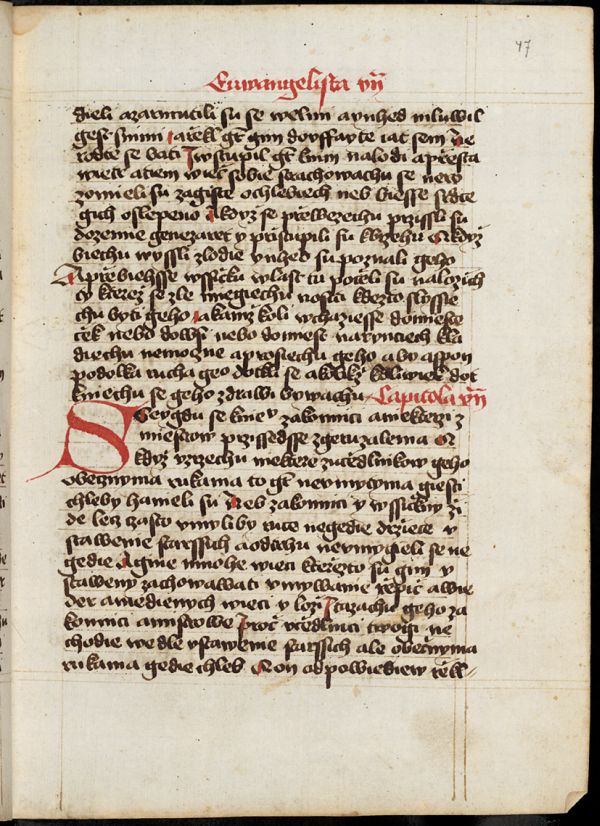 47
Euwangelista vii
dieli azarmutili su se welmi a ynhed mluwil
gest s nimi a rekl gt gim doyffayte iat sem ne
rodte se bati I wstupil gt k nim na lodi a presta
wietr a tiem wiec sobie strachowachu se nero
zomieli su zagiste o chlebiech neb biesse srdce
gich oslepeno A kdyz se prewezechu przissli su
do zemie genezaret y pristupili su k brzehu A kdyz
biechu wyssli z lodie ynhed su poznali geho
A prebiehsse wssicku wlast tu poceli su na lozich
ty kterez se zle megiechu nositi kdezto slyssie
chu byti geho a kamz koli wchaziesse do miestc
nebo dowsi nebo do miest na rynciech kla
diechu nemoczne a prosiechu geho aby aspon
podolka rucha geo dotkli se a kolikz kolwiek dot
kniechu se geho zdrawi bywachu Capitola vii
Segdu se k niemu zakonnici a niekterzi z
miestow przissedsse z geruzalema A
kdyz vzrzechu niektere z uczedlnikow geho
obecznyma rukama to gt nevmytyma giesti
chleby haneli su Neb zakonnici y wssickni zi
de lecz czasto vmyli by ruce negedie drziece v
stawenie starssich a od trhu nevmygieli se ne
gedie A gine mnohe wieci kterezto su gim v
staweny zachowawati vmywanie
der a miedienych wieci y lozi I tazachu geho za
konnici a mistrowe Procz vczedlnici twogi ne
chodie wedle vstawenie starssich ale obecnyma
rukama gedie chleb A on odpowiediew rekl